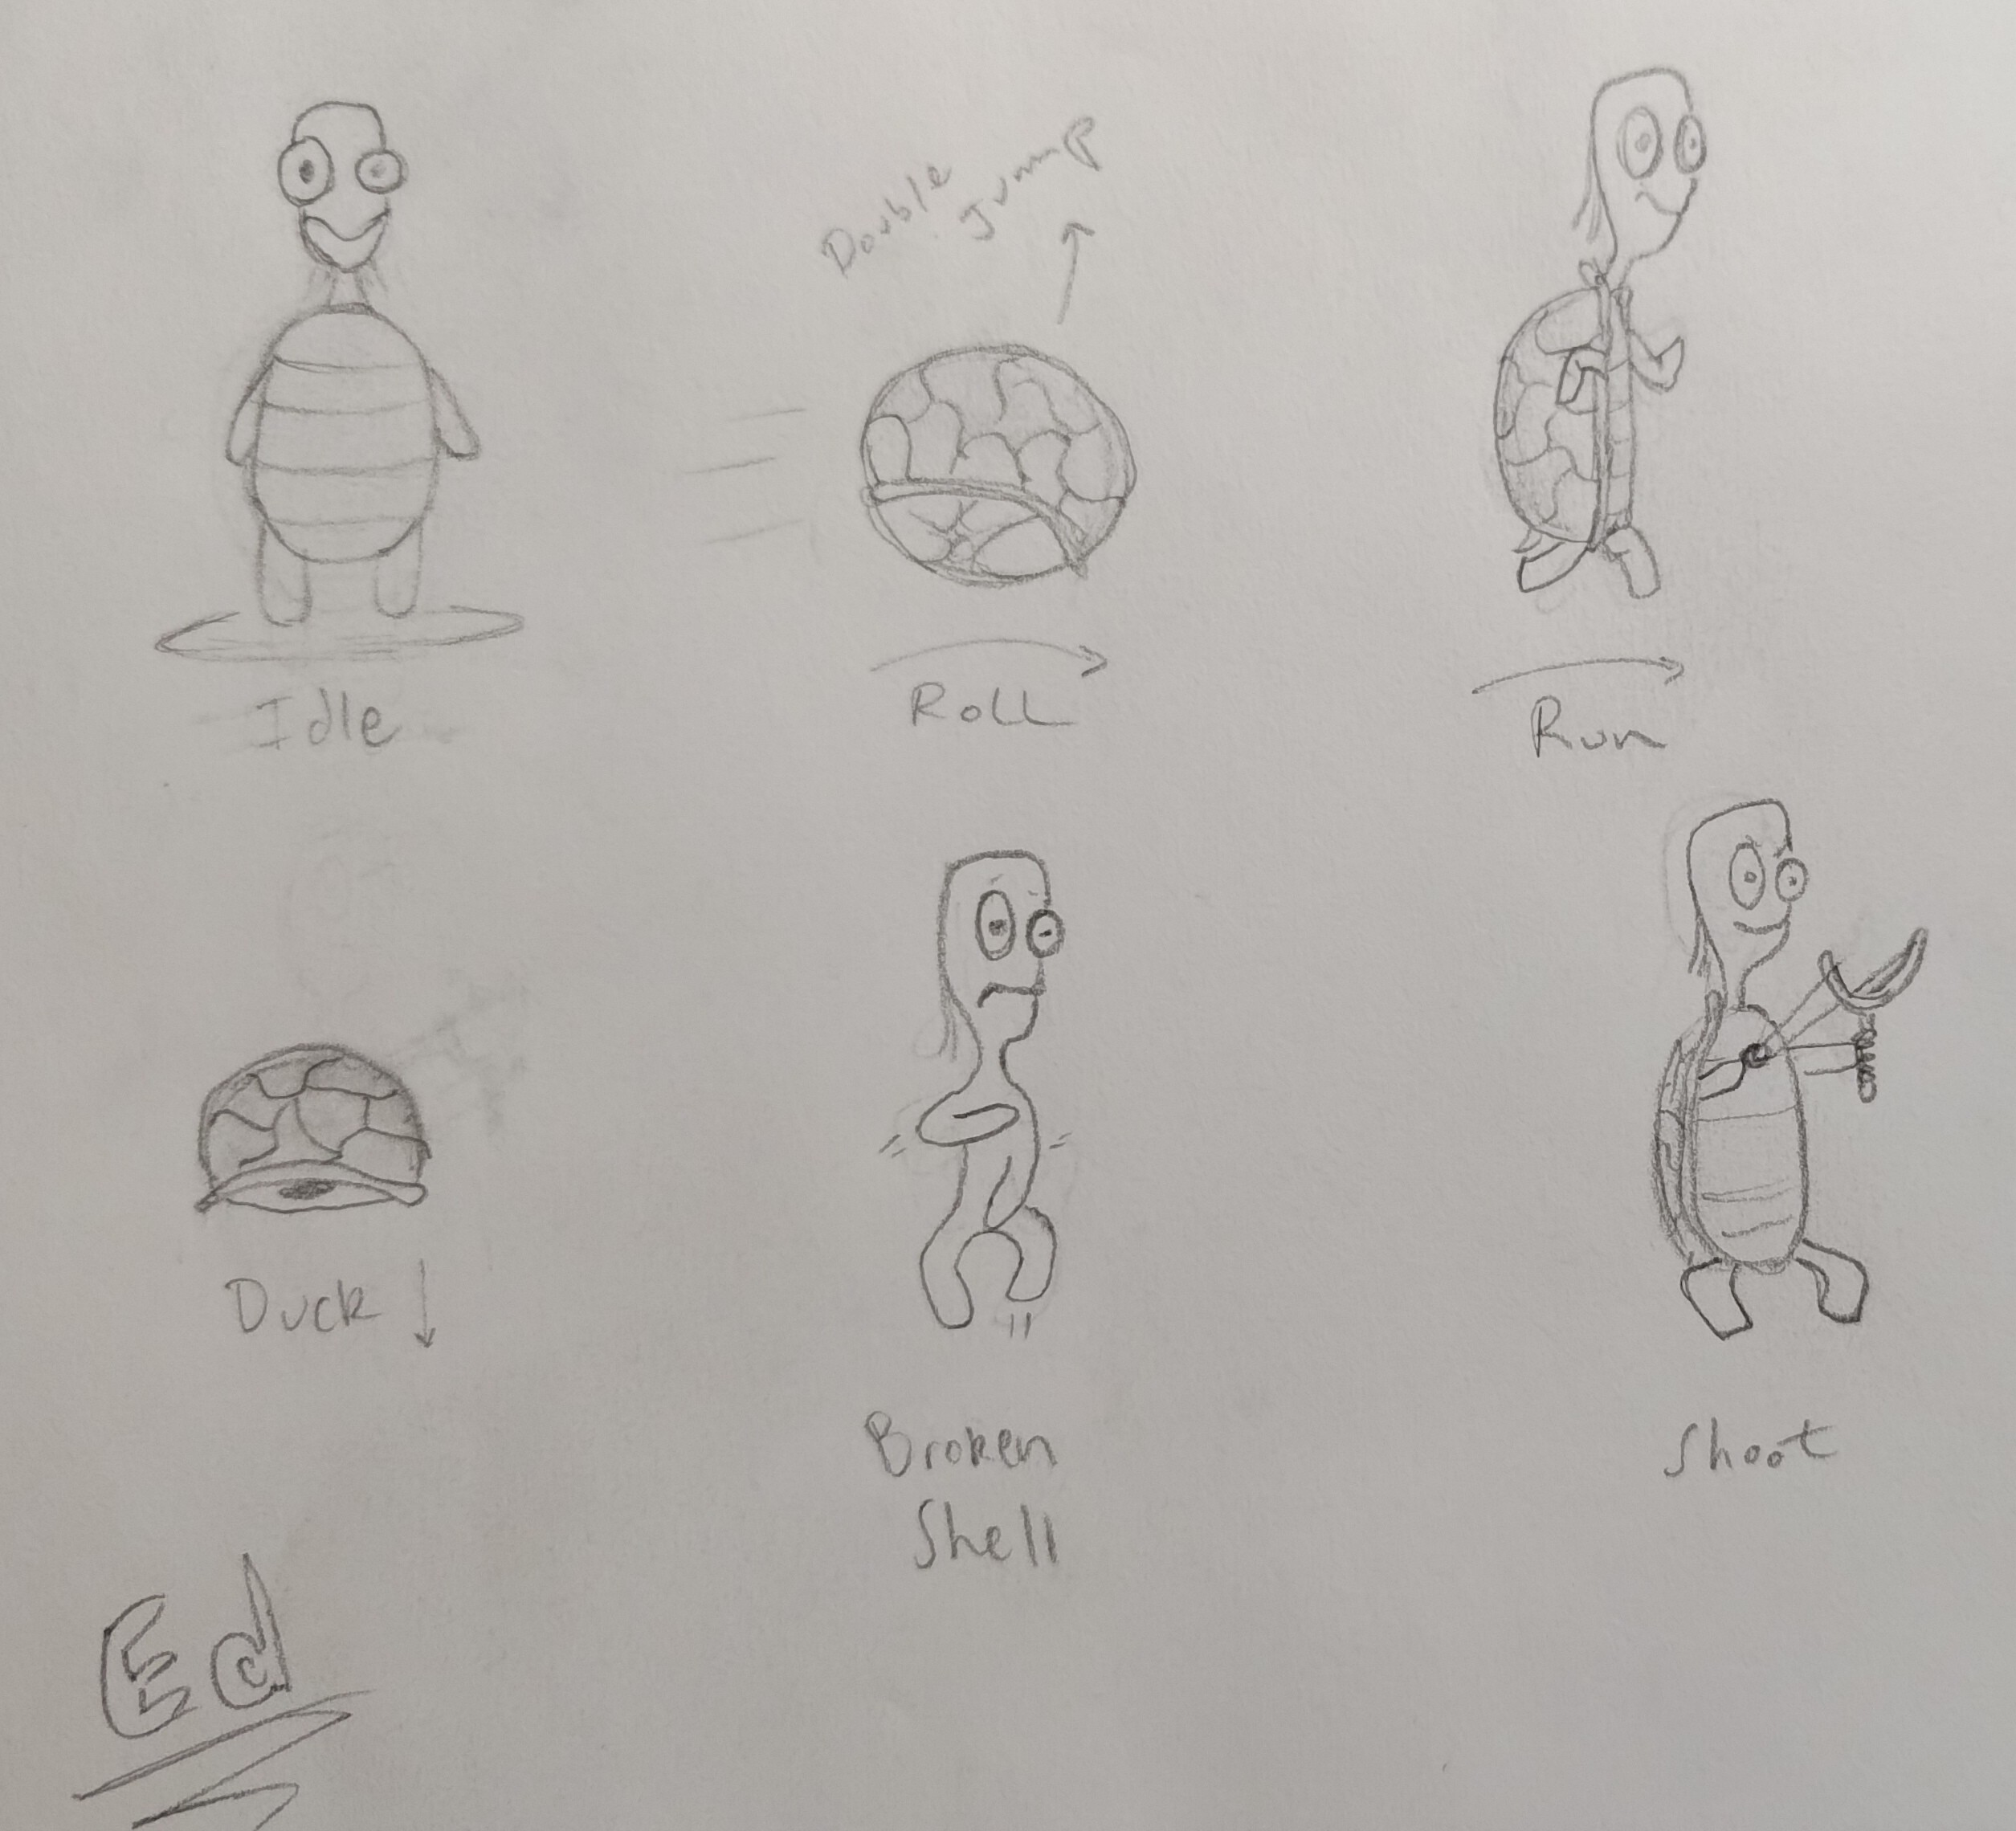 Double
Jump
Idle
Roll
Run
Duck
Broken
Shell
Shoot
Ed